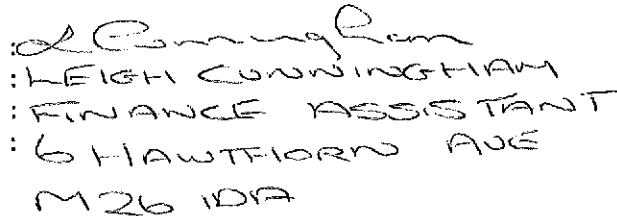 : L Cunningham
: LEIGH CUNNINGHAM
: FINANCE ASSISTANT
: 6 HAWTHORN AVE
M26 1DA